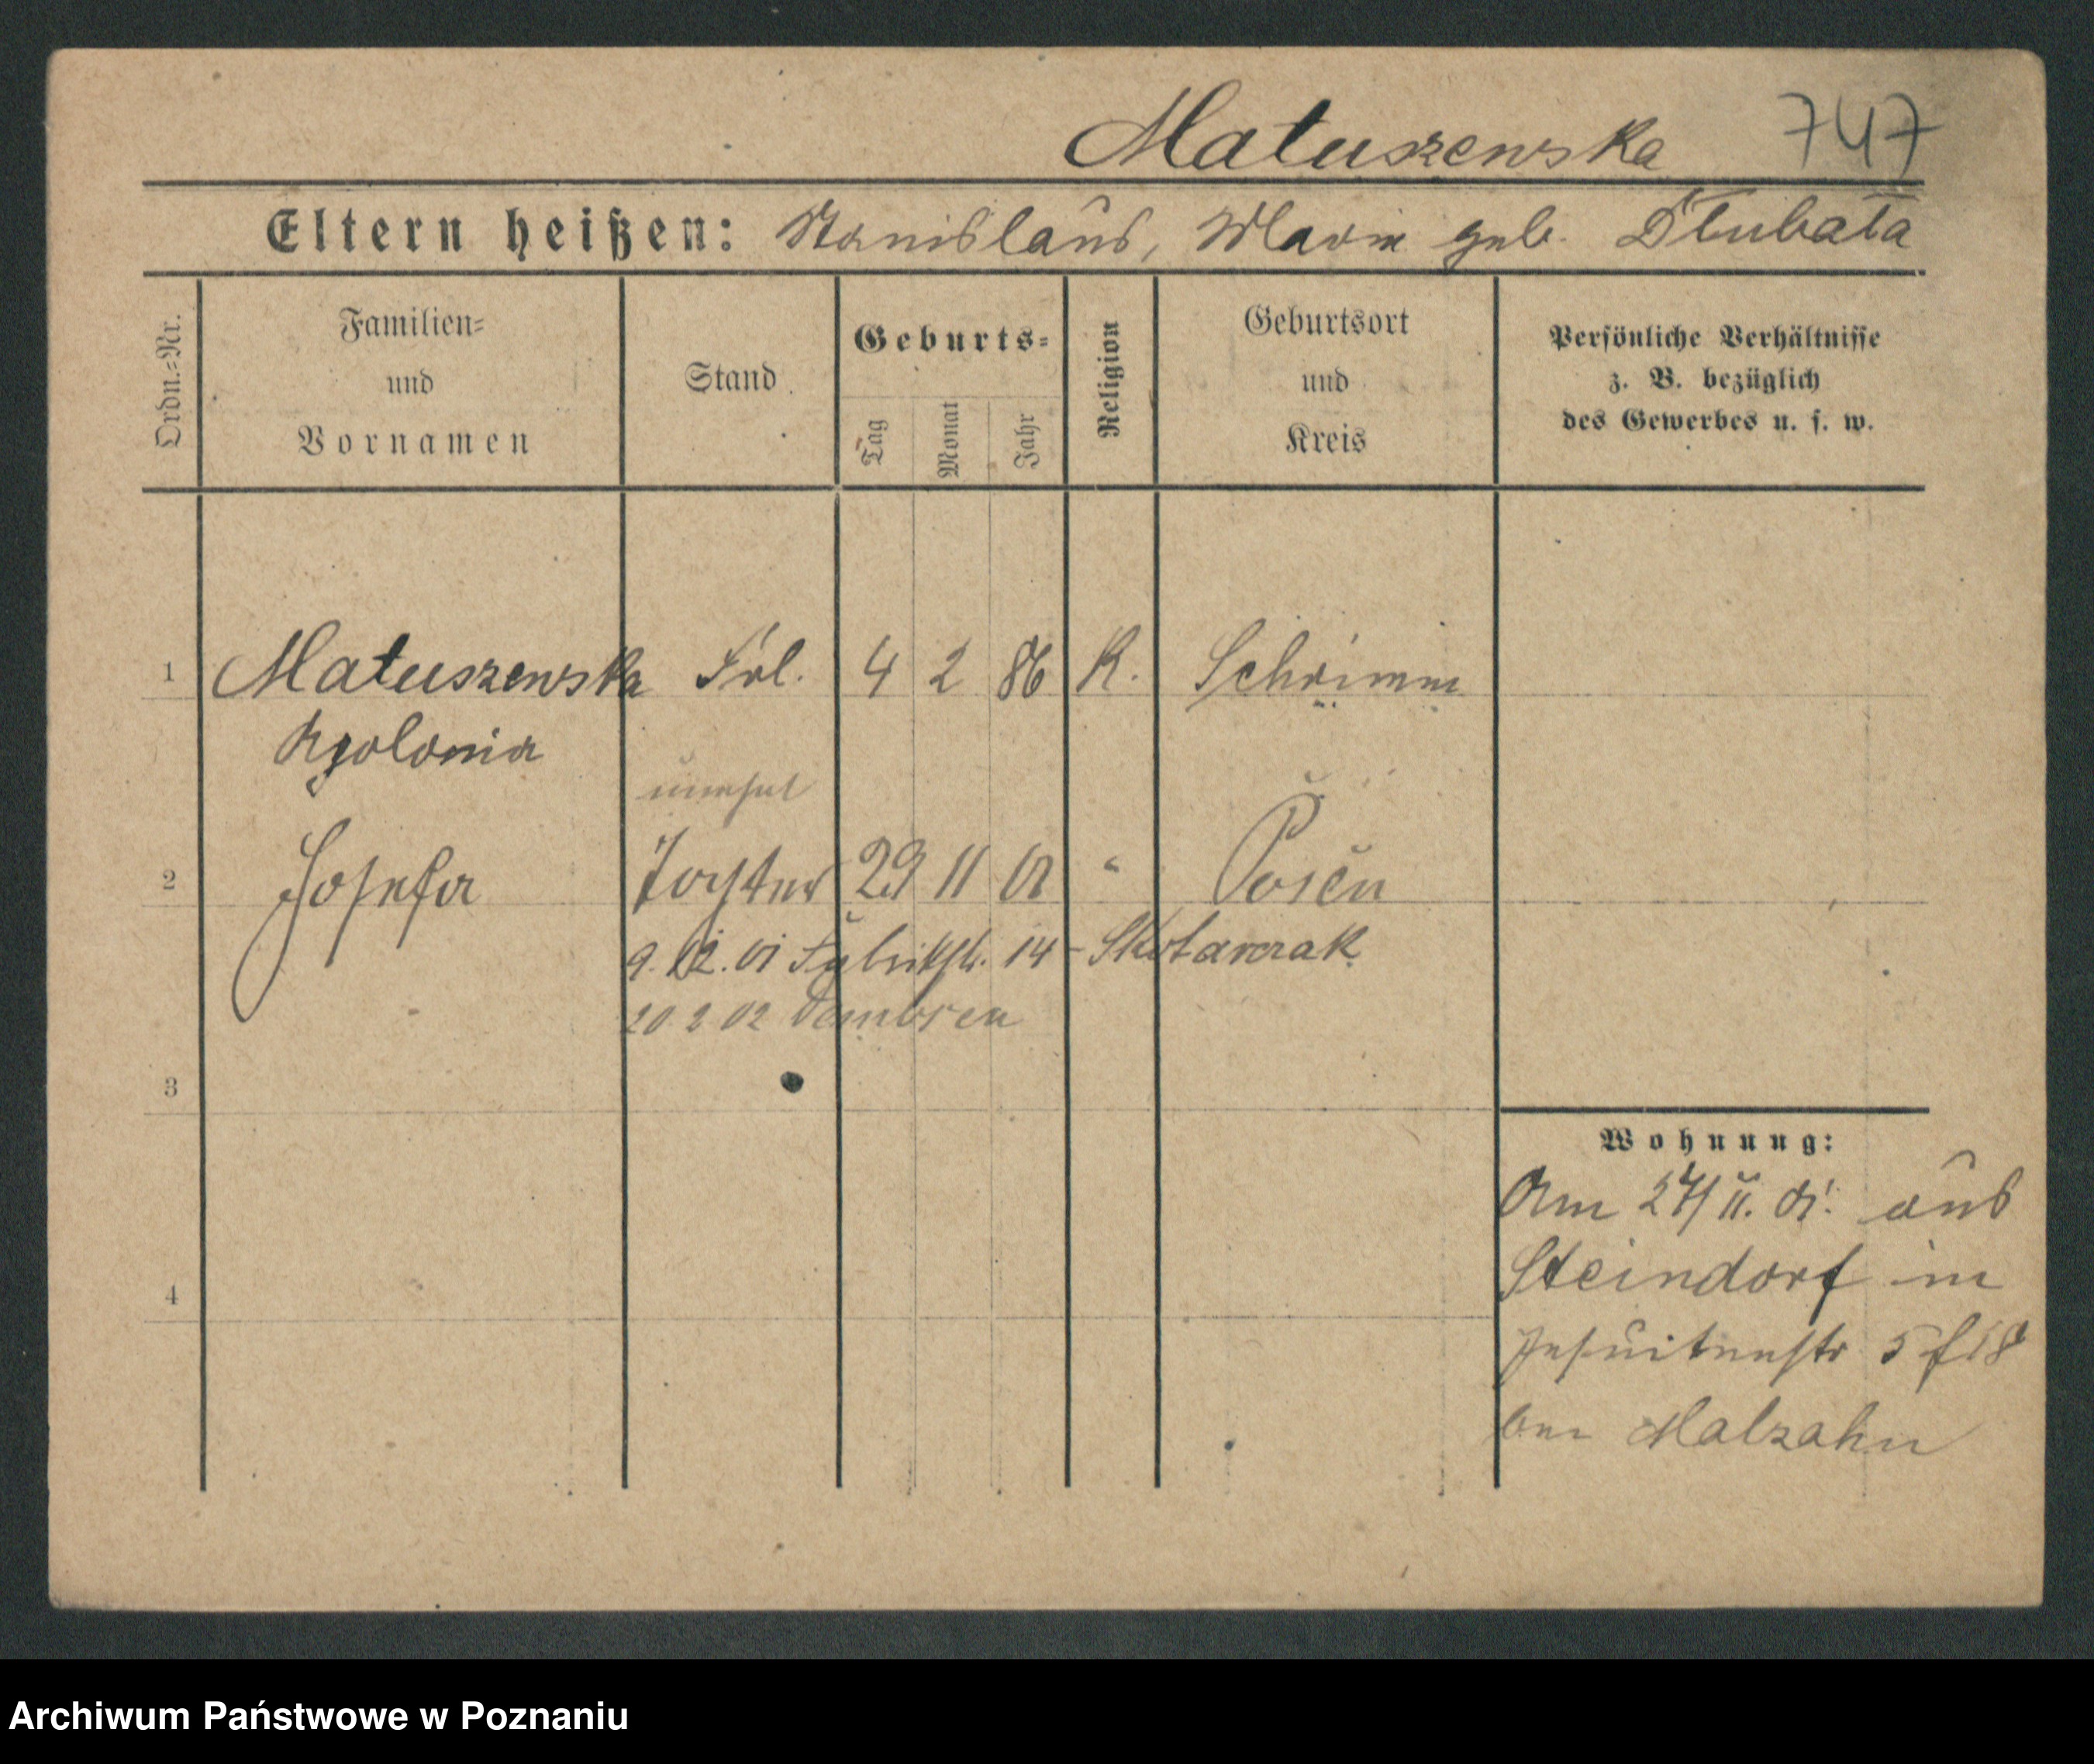 Matuszewska 747
Eltern heißen: Stanislaus, Maria geb. Dłubała
Ordn.=Nr.
Familien=
und
Vornamen
Stand
Geburts=
Tag
Monat
Jahr
Religion
Geburtsort
und
Kreis
Persönliche Verhältnisse
z. B. bezüglich
des Gewerbes u. s. w.
1 Matuszewska Frl. 4 2 86 K. Schrimm
Apolonia
unehel
2 Josefa Tochter 29 11 01 " Posen
9. 12. 01 Fabrikstr. 14 - Skotarczak
20 2 02 Dembsen
3
4
Wohnung:
Am 27/11. 01. aus
Steindorf in
Jesuitenstr 5
bei Malzahn
Archiwum Państwowe w Poznaniu